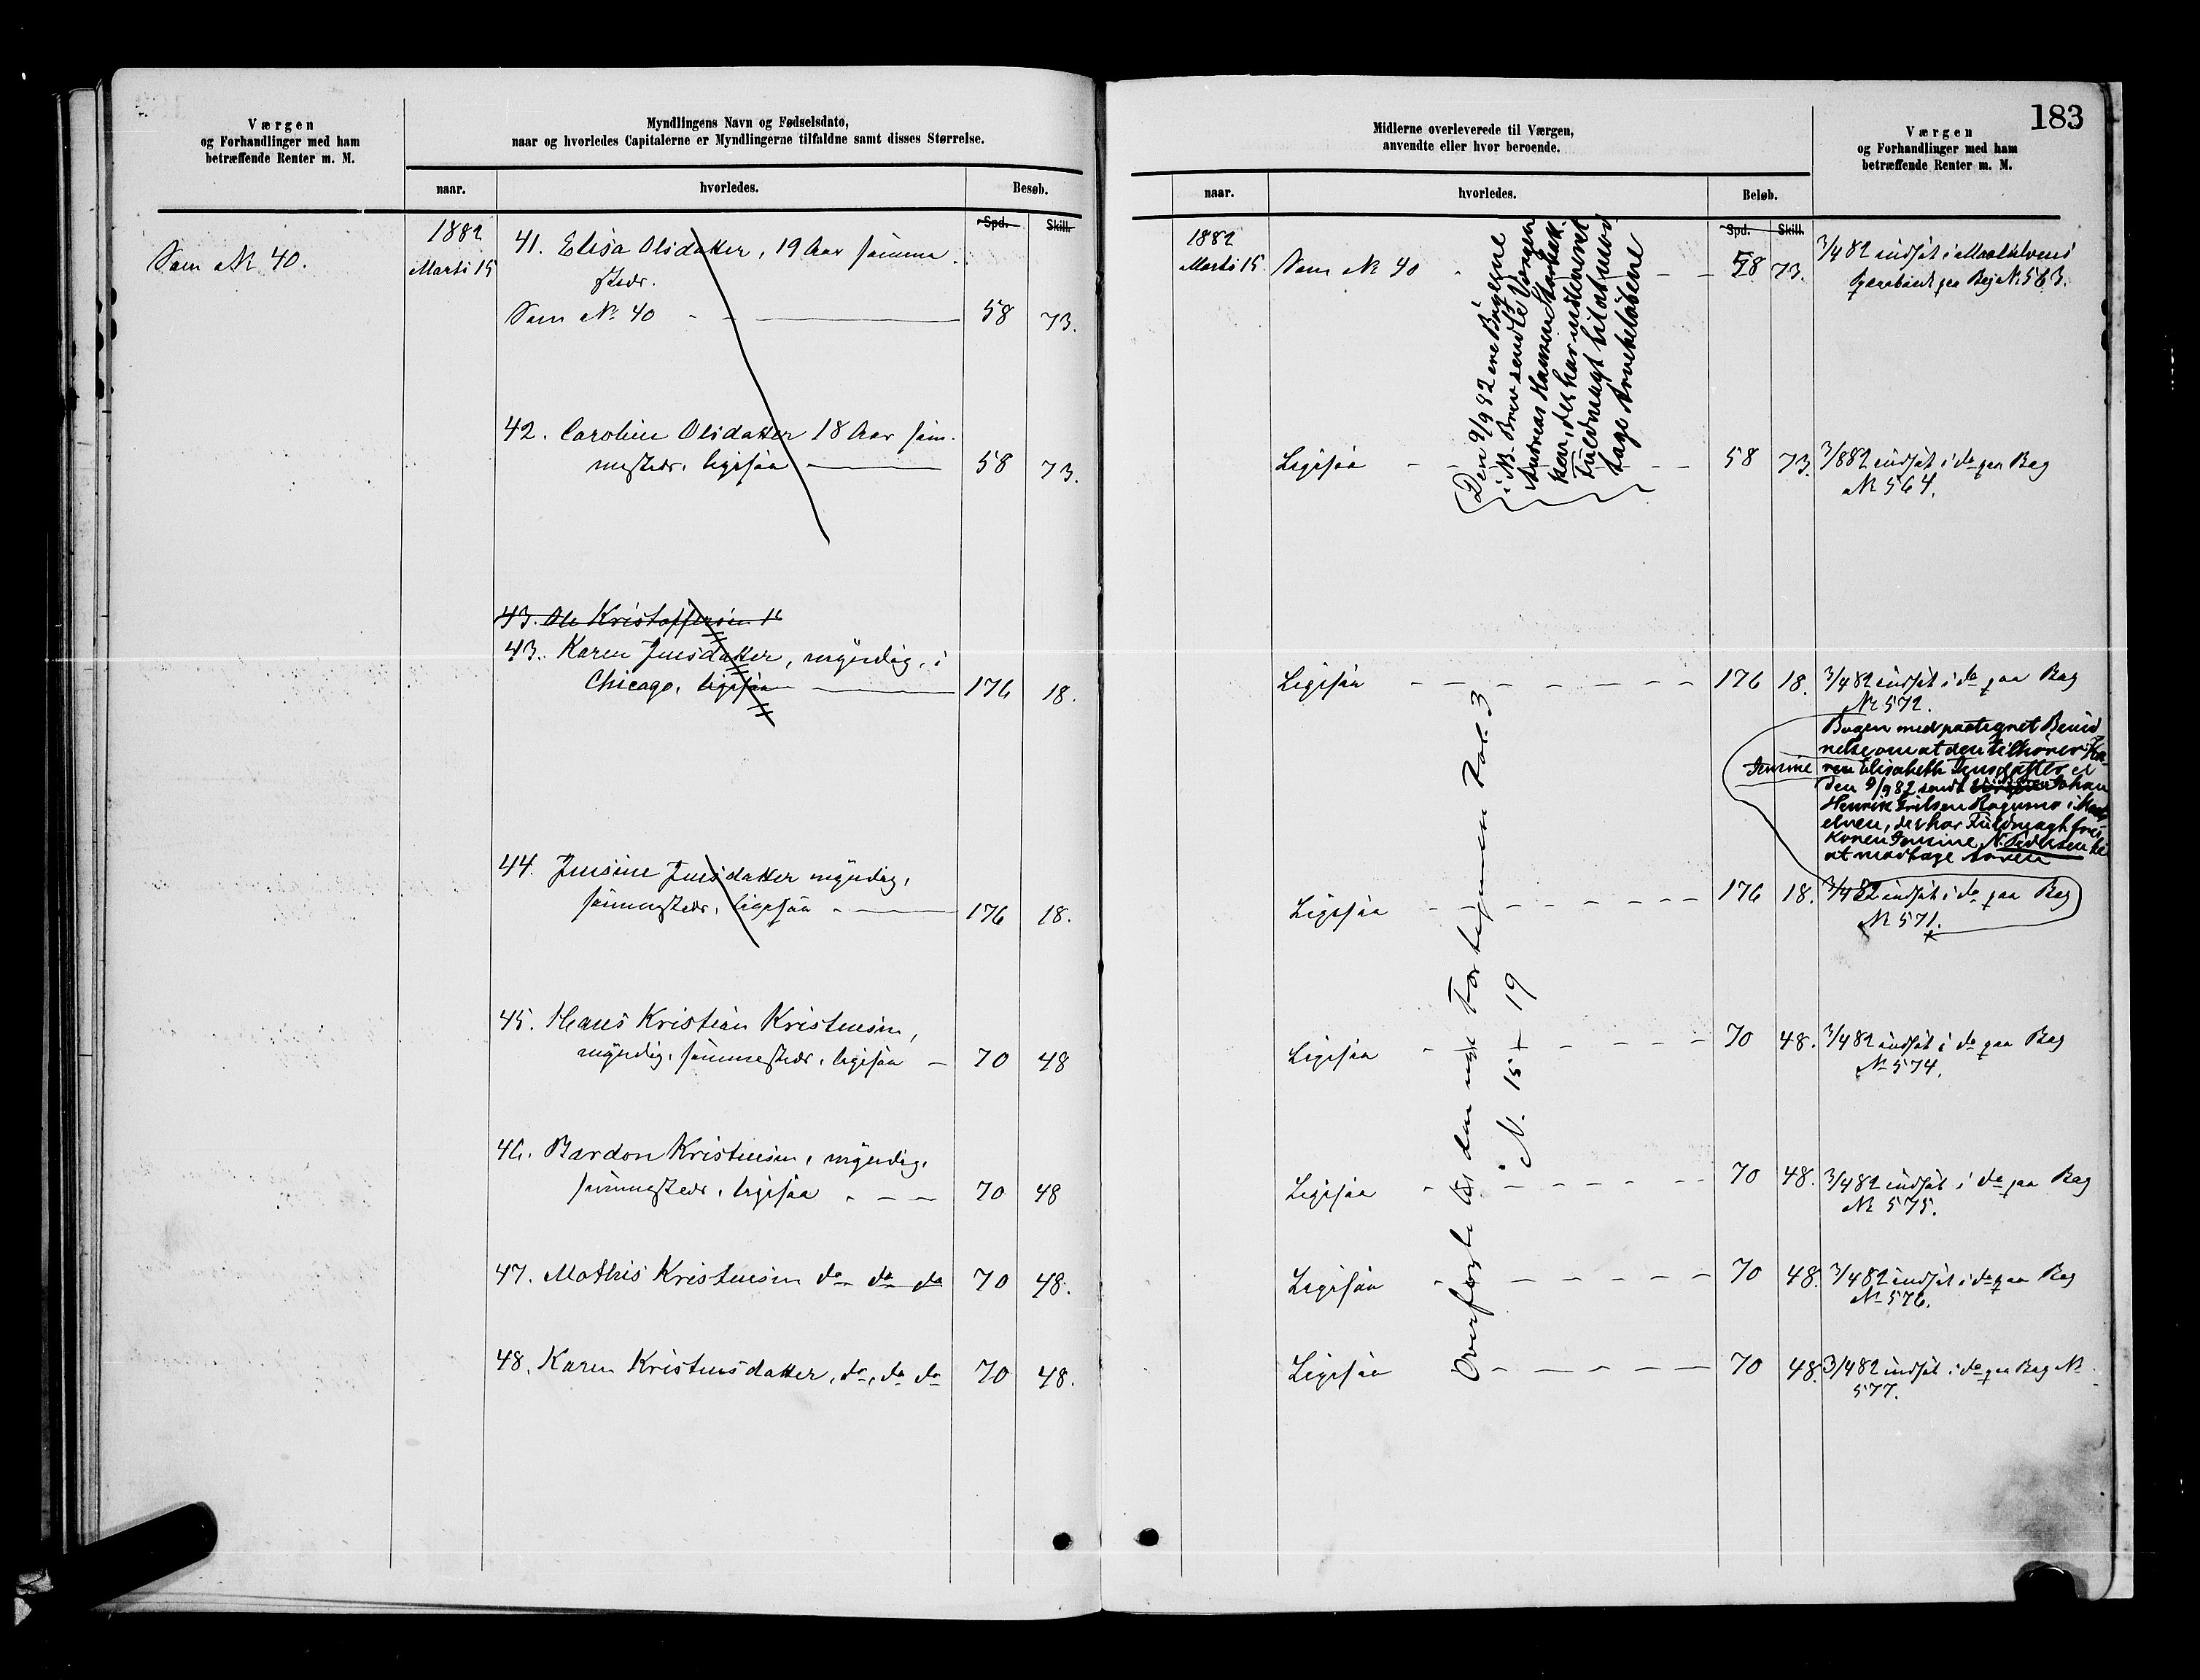 183
Værgen
og Forhandlinger med ham
betræffende Renter m. M.
Myndlingens Navn og Fødselsdato,
naar og hvorledes Capitalerne er Myndlingerne tilfaldne samt disses Størrelse.
naar.
hvorledes.
Besøb.
Spd.
Skill.
Som No 40.
1882
Marts 15
41. Elisa Olsdatter, 19 Aar samme
steds.
Som No 40 58 73.
42. Caroline Olsdatter 18 Aar sam-
mesteds, ligesaa 58 73.
43. Ole Kristoffersen 16
43. Karen Jensdatter, myndig, i
Chicago, ligesaa 176 18.
44. Jensine Jensdatter myndig,
sammesteds, ligesaa 176 18.
45. Hans Kristian Kristensen,
myndig, sammesteds, ligesaa 70 48
46. Bardon Kristensen, myndig,
sammesteds, ligesaa 70 48
47. Mathis Kristensen do do do 70 48.
48. Karen Kristensdatter, do, do do 70 48.
Midlerne overleverede til Værgen,
anvendte eller hvor beroende.
Værgen
og Forhandlinger med ham
betræffende Renter m. M.
naar.
hvorledes.
Beløb.
Spd.
Skill.
1882
Marts 15 Som No 40 58 73. 3/4 82 indsat i Maalselvens
Sparebank paa Bog No 563.
Den 9/9 82 ere Bøgerne
i N. B. Brev sendte Værgen
Andreas Hansen
ken, der har medlemmet
Fuldmagt til at mod
tage Arvebeløbene
Ligesaa 58 73. 3/882 indsat i do paa Bog
No 564.
Ligesaa 176 18. 3/482 indsat i do paa Bog
Nr 572.
Bogen med paategnet Bevid
nelse om at den tilhører Ka-
Jensine ren Elisabeth Jensdatter er
den 9/9 82 sendt Johan
Henrik Erilsen i Maals
elven, der har Fuldmagt fra
Konen Jensine N. Pedersen til
at modtage Arven
Ligesaa 176 18. 3/482 indsat i do paa Bog
No 571.
Ligesaa 70 48. 3/482 indsat i do paa Bog
No 574.
Ligesaa 70 48. 3/482 indsat i do paa Bog
No 575.
Ligesaa 70 48. 3/482 indsat i do paa Bog
No 576.
Ligesaa 70 48. 3/482 indsat i do paa Bog No
577.
Overførte til den nye Fortegnelse Fol. 3
i N. 15 + 19